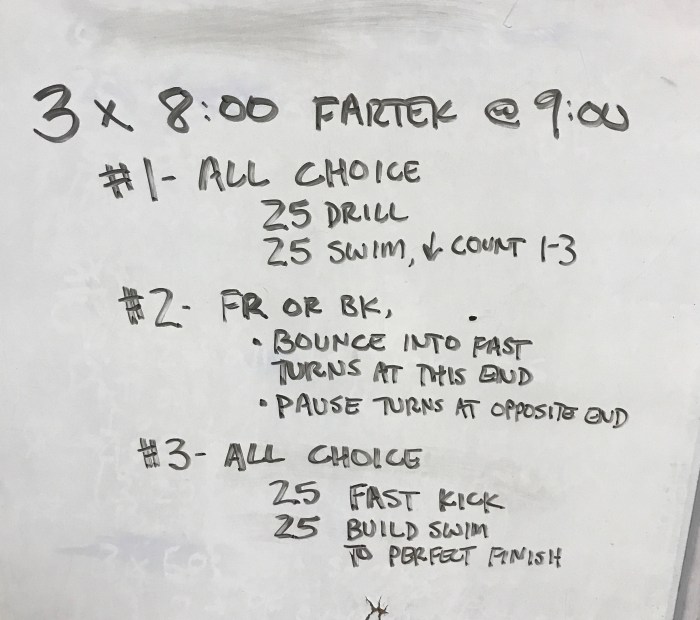 3 x 8:00 FARTEK @ 9:00
#1- ALL CHOICE
25 DRILL
25 SWIM, ↓ COUNT 1-3
#2- FR OR BK,
• BOUNCE INTO FAST
TURNS AT THIS END
• PAUSE TURNS AT OPPOSITE END
#3- ALL CHOICE
25 FAST KICK
25 BUILD SWIM
TO PERFECT FINISH